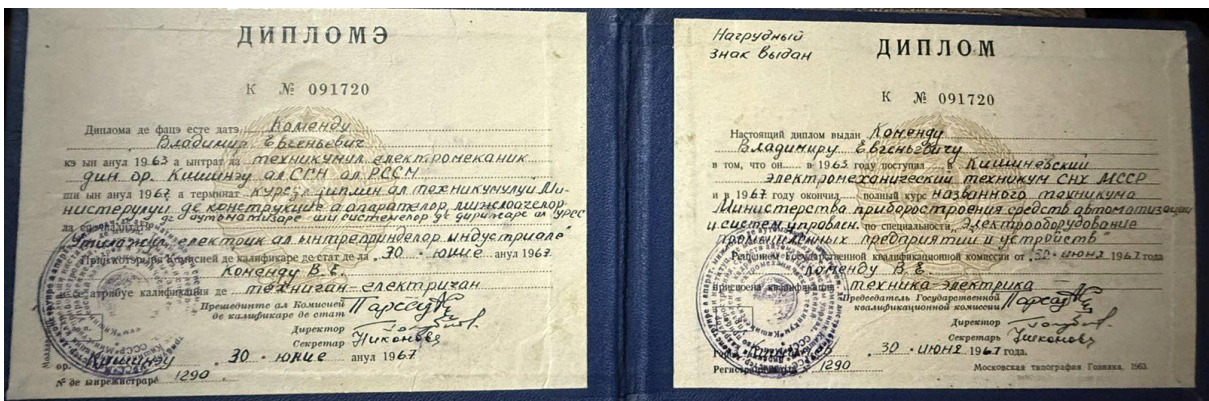 ДИПЛОМЭ
К № 091720
Диплома де фацэ есте датэ Коменду
Владимир Евгеньевич
кэ ын анул 1963 а ынтрат ла техникумул електромеканик
дин ор. Кишинэу ал ССН ал РССМ
ши ын анул 1967 а терминат курсул деплин ал техникумулуй Ми-
нистерулуй де конструкцие а апарателор, мижлоачелор
де аутоматизаре ши системелор де дирижаре ал УРСС
ла специалитатя
"Утилажул електрик ал ынтреприндерилор индустриале"
Прин хотэрыря Комисией де калификаре де стат де ла 30 юние анул 1967
Коменду В.Е.
и се атрибуе калификация де техничиан-електричиан
Прешединте ал Комисией
де калификаре де стат
Директор
Секретар Никонова
ор. Кишинэу 30 юние анул 1967
№ де ынрежистраре 1290
Нагрудный
знак выдан
ДИПЛОМ
К № 091720
Настоящий диплом выдан Коменду
Владимиру Евгеньевичу
в том, что он в 1963 году поступил в Кишиневский
электромеханический техникум СНХ МССР
и в 1967 году окончил полный курс названного техникума
Министерства приборостроения средств автоматизации
и систем управлен. по специальности „Электрооборудование
промышленных предприятий и устройств"
Решением Государственной квалификационной комиссии от 30 июня 1967 года
Коменду В. Е.
присвоена квалификация техника-электрика
Председатель Государственной
квалификационной комиссии
Директор
Секретарь Никонова
30 июня 1967 года.
1290
Московская типография Гознака, 1963.